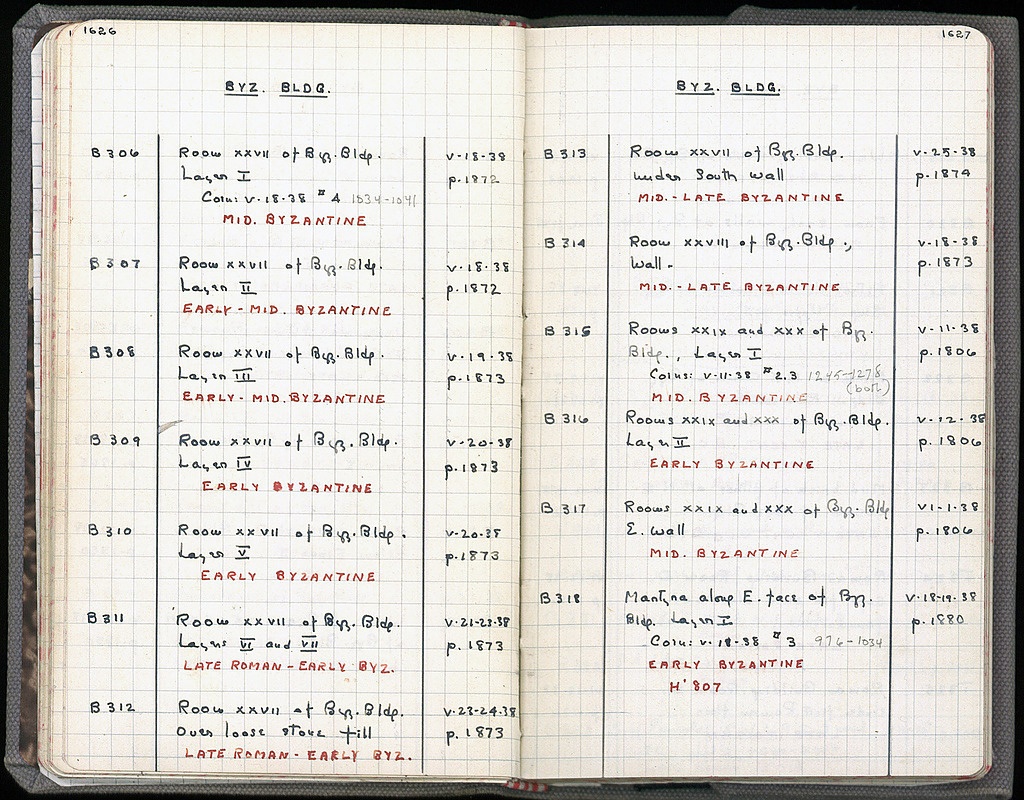 1626
BYZ. BLDG.
B306 Room xxvii of Byz. Bldg. v-18-38
Layer I p.1872
Coin: v-18-38 #4 1034-1041
MID. BYZANTINE
B307 Room xxvii of Byz. Bldg. v-18-38
Layer II p.1872
EARLY-MID. BYZANTINE
B308 Room xxvii of Byz. Bldg. v-19-38
Layer III p.1873
EARLY-MID. BYZANTINE
B309 Room xxvii of Byz. Bldg. v-20-38
Layer IV p.1873
EARLY BYZANTINE
B310 Room xxvii of Byz. Bldg. v-20-38
Layer V p.1873
EARLY BYZANTINE
B311 Room xxvii of Byz. Bldg. v-21-23-38
Layers VI and VII p.1873
LATE ROMAN-EARLY BYZ.
B312 Room xxvii of Byz. Bldg. v-23-24-38
Over loose stone fill p.1873
LATE ROMAN-EARLY BYZ.
1627
BYZ. BLDG.
B313 Room xxvii of Byz. Bldg. v-25-38
under South wall p.1874
MID.-LATE BYZANTINE
B314 Room xxviii of Byz. Bldg., v-18-38
Wall. p.1873
MID.-LATE BYZANTINE
B315 Rooms xxix and xxx of Byz. v-11-38
Bldg., Layer I p.1806
Coins: v-11-38 #2.3 1245-1278
(both)
MID. BYZANTINE
B316 Rooms xxix and xxx of Byz. Bldg. v-12-38
Layer II p.1806
EARLY BYZANTINE
B317 Rooms xxix and xxx of Byz. Bldg v1-1-38
E. wall p.1806
MID. BYZANTINE
B318 along E. face of Byz. v-18-19-38
Bldg. Layer I p.1880
Coin: v-18-38 #3 976-1034
EARLY BYZANTINE
H'807